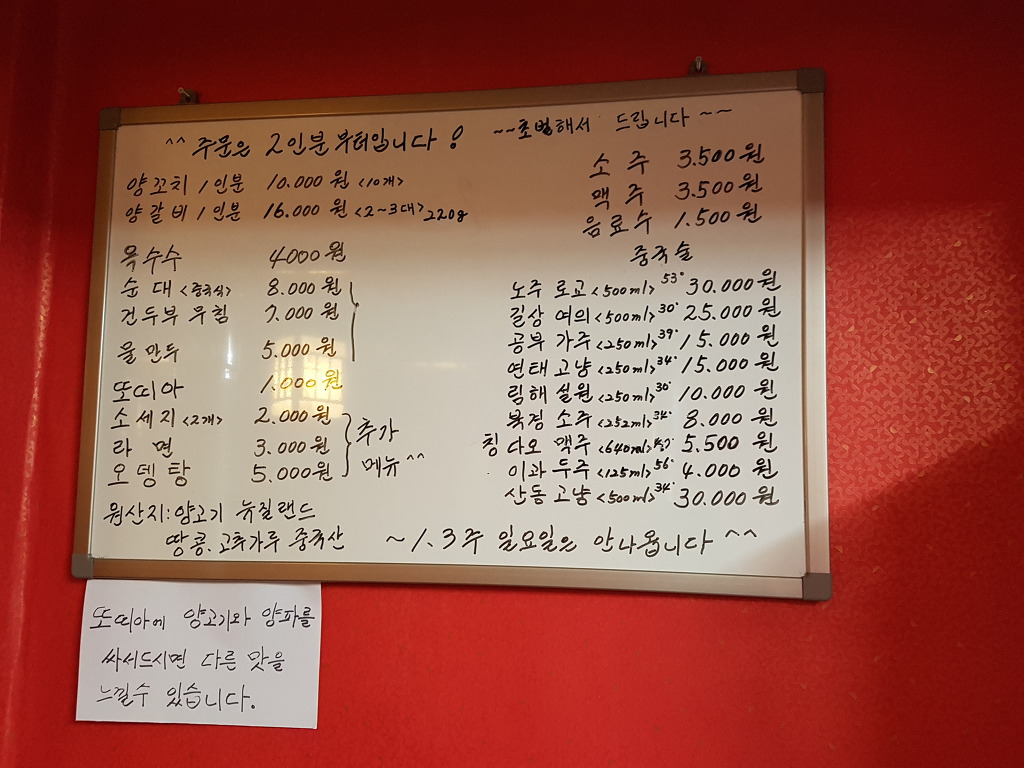 ^^ 주문은 2인분부터입니다!
~~초벌해서 드립니다~~
양꼬치 1인분 10.000원 <10개>
양갈비 1인분 16.000원 <2~3대> 220g
옥수수 4000원
순대 <중국식> 8.000원
건두부 무침 7.000원
물만두 5.000원
또띠아 1.000원
소세지 <2개> 2.000원
라면 3.000원
오뎅탕 5.000원
추가
메뉴^^
소주 3.500원
맥주 3.500원
음료수 1.500원
중국술
노주 로교 <500ml> 53° 30.000원
길상 여의 <500ml> 30° 25.000원
공부 가주 <250ml> 39° 15.000원
연태 고냥 <250ml> 34° 15.000원
림해 설원 <250ml> 30° 10.000원
북경 소주 <252ml> 34° 8.000원
칭다오 맥주 <640ml> 5.500원
이과 두주 <125ml> 56° 4.000원
산동 고냥 <500ml> 34° 30.000원
원산지: 양고기 뉴질랜드
땅콩. 고추가루 중국산
~1.3주 일요일은 안나옵니다^^
또띠아에 양고기와 양파를
싸서드시면 다른 맛을
느낄수 있습니다.